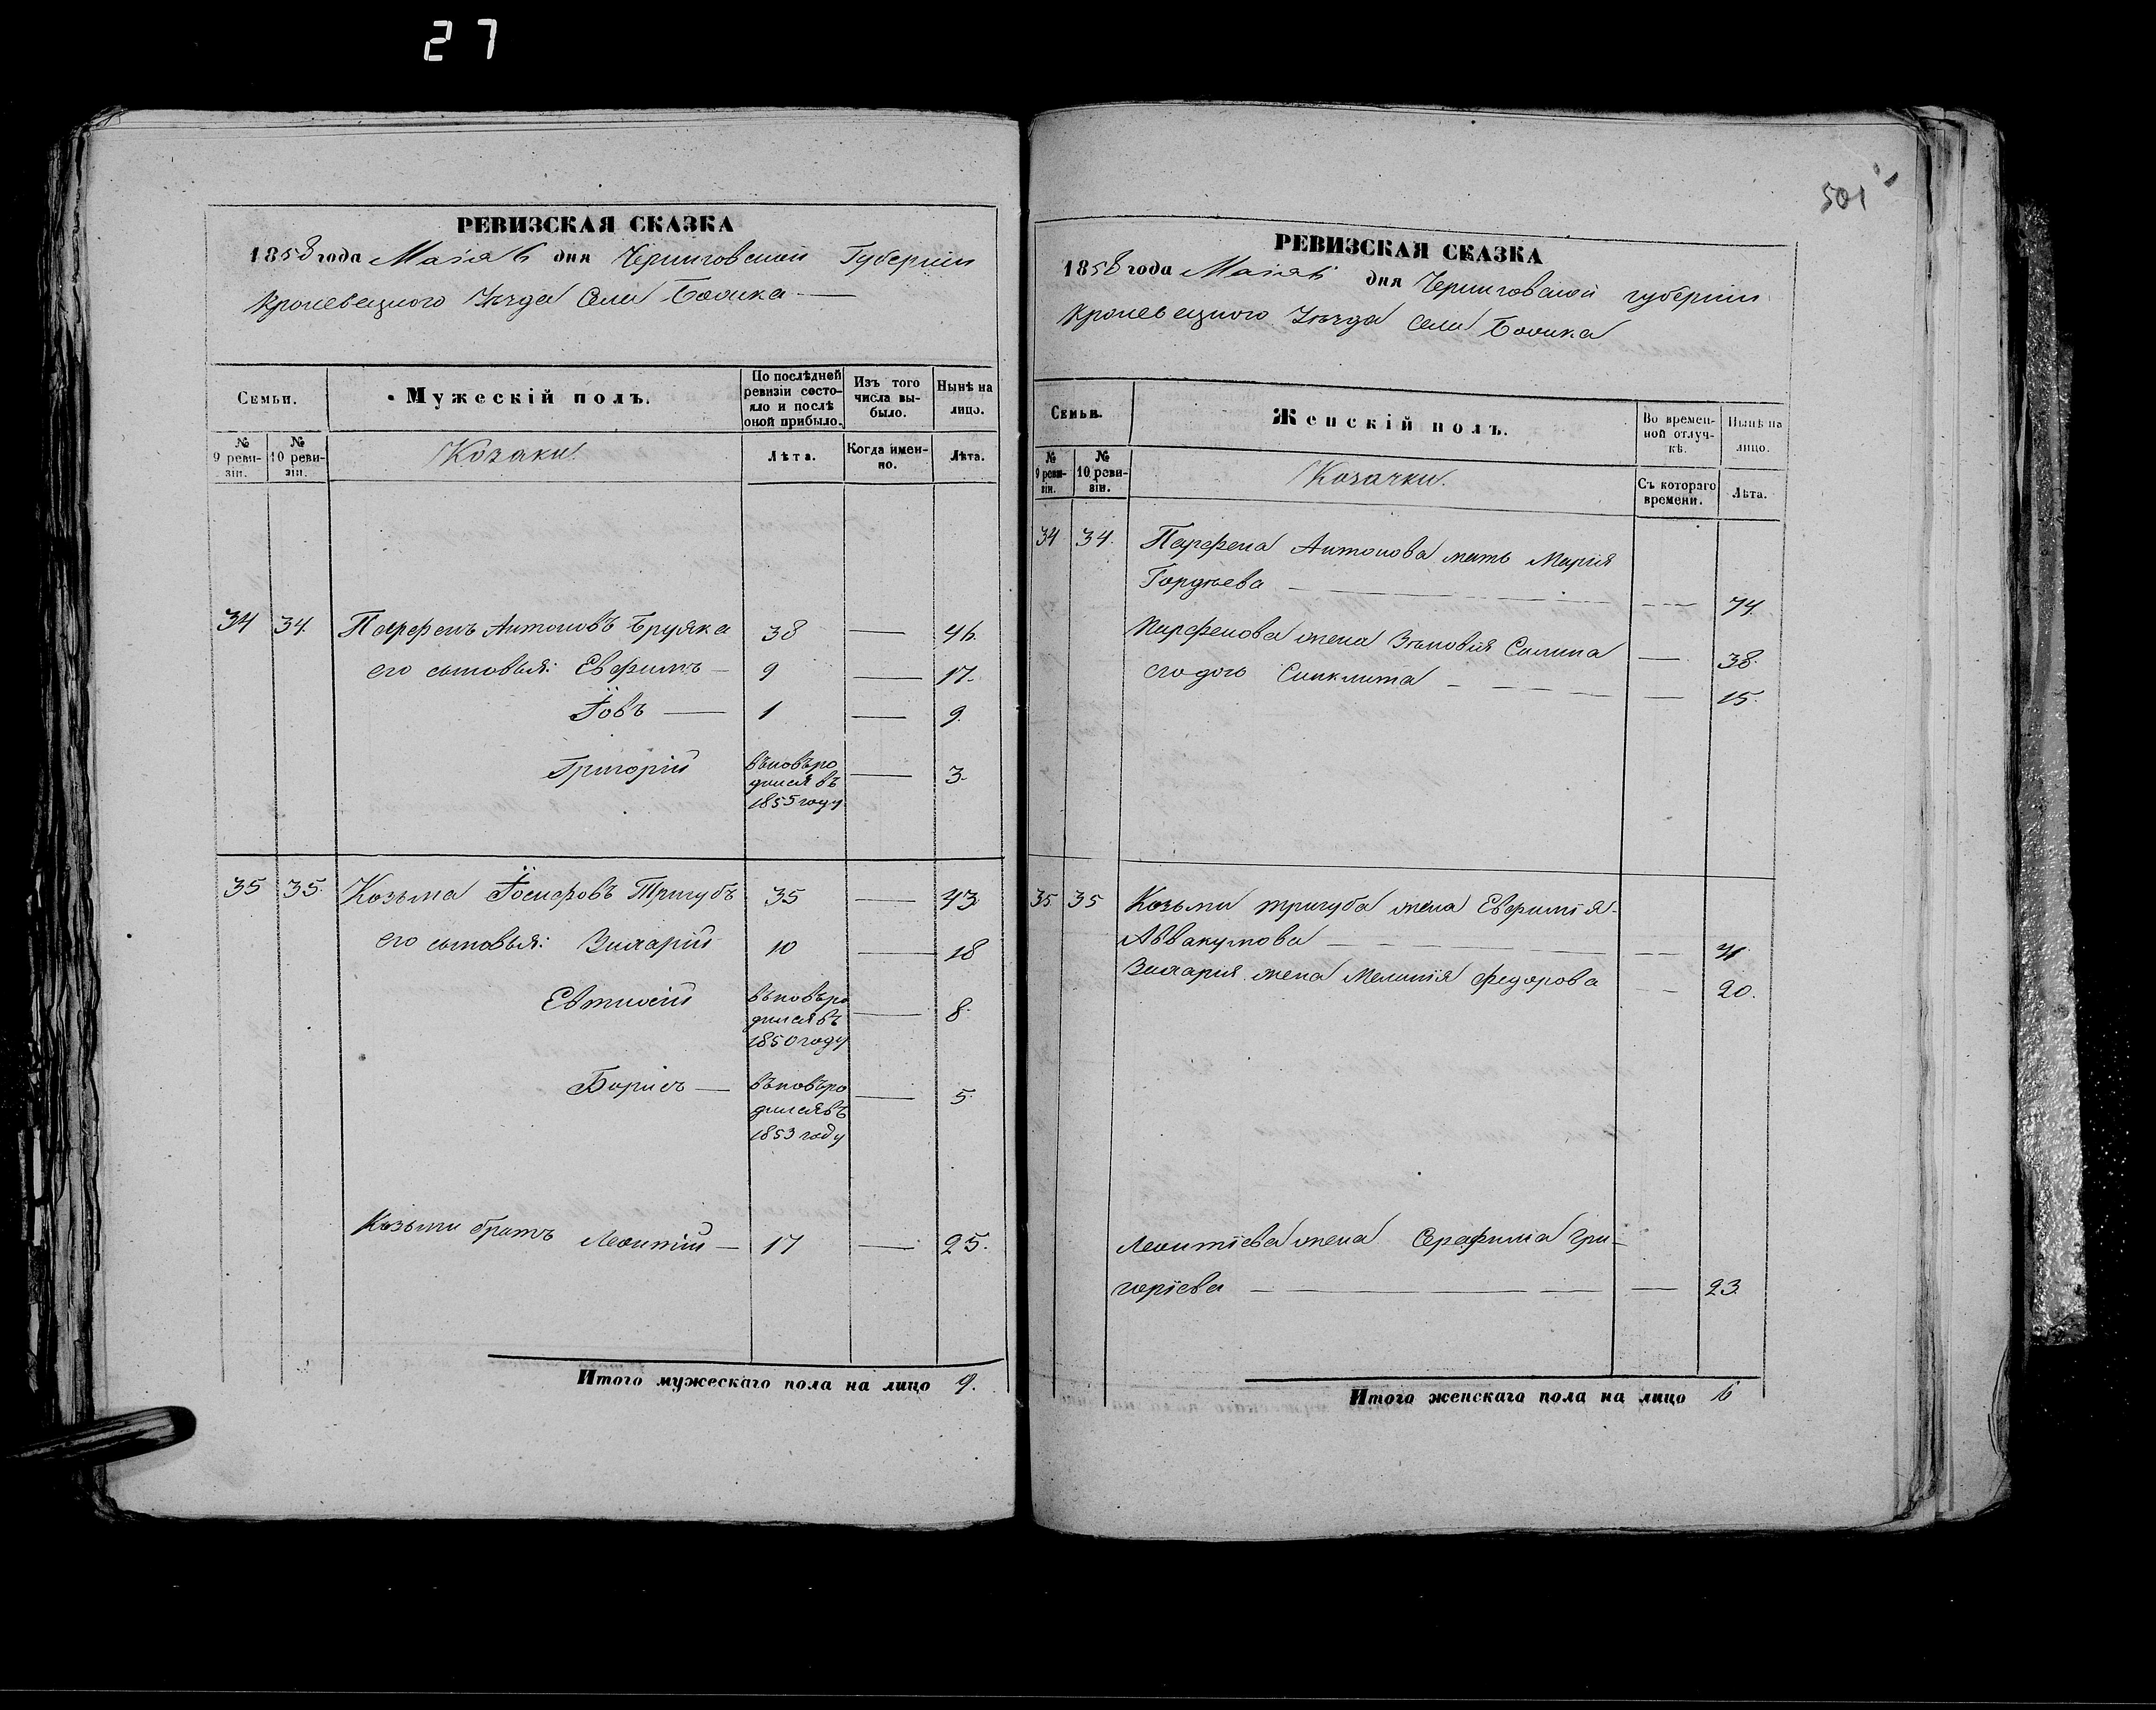 27
501
РЕВИЗСКАЯ СКАЗКА
1858 года Маія 6 дня Черниговской Губерніи
Кролевецкого Уѣзда Села
Семьи.
Мужескій полъ.
По послѣдней ревизіи состояло и послѣ оной прибыло.
Изъ того числа выбыло.
Нынѣ на лицо.
№ 9 ревизіи.
№ 10 ревизіи.
Козаки.
Лѣта.
Когда именно.
Лѣта.
34 34. Парфенъ Антоновъ Бруяка 38 — 46
его сыновья: Евфимъ — 9 — 17.
Іовъ — 1 — 9.
Григорій вновьро
дился въ — 3.
1855 году
35 35. Козьма Іосифовъ Тригубъ 35 — 43
его сыновья: Виларій 10 — 18
Евтихій вновьро
дился въ — 8.
1850 году
Борисъ — вновьро
дился въ — 5.
1853 году
Козьмы братъ Леонтій — 17 — 25.
Итого мужескаго пола на лицо 9.
РЕВИЗСКАЯ СКАЗКА
1858 года Маія 6 дня Черниговской губерніи
Кролевецкого Уѣзда Села
Семьи.
Женскій полъ.
Во временной отлучкѣ.
Нынѣ на лицо.
№ 9 ревизіи.
№ 10 ревизіи.
Козачки.
Съ котораго времени.
Лѣта.
34 34. Парфена Антонова мать Марія
Гордѣева — — — 74.
Парфенова жена Зѣновія — 38.
его дочь Синклита — — — 15.
35 35 Козьмы Тригуба жена Евфимія
Аввакумова — — —
Виларія жена Меланія Федорова — — 20.
Леонтіева жена Серафима Гри-
горіева — — — — 23.
Итого женскаго пола на лицо 6